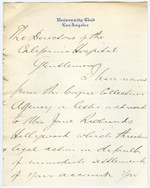 University Club
Los Angeles
The Directors of the
California Hospital
Gentlemen:
I have
from the
Agency a letter addressed
to Mrs Jane
Hollywood which threatens
legal action in default
of immediate settlement
of your account for